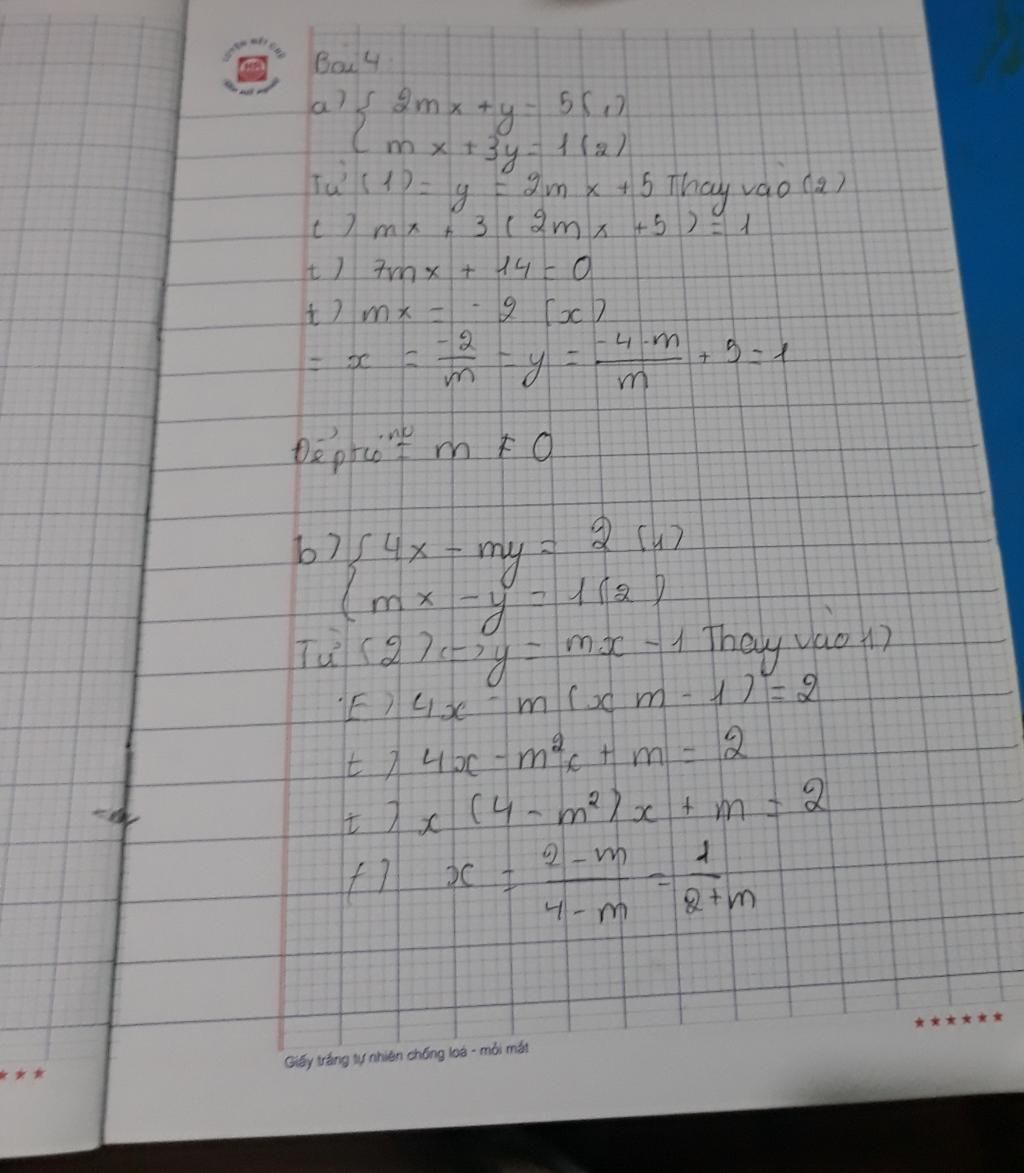 Bài 4
a) { 2mx + y = 5 (1)
{ mx + 3y = 1 (2)
Từ (1) = y = 2mx + 5 Thay vào (2)
t) mx + 3 (2mx + 5) = 1
t) 7mx + 14 = 0
t) mx = - 2 (x)
= x = \frac{-2}{m} - y = \frac{-4-m}{m} + 5 = 1
Để m ≠ 0
b) { 4x - my = 2 (1)
{ mx - y = 1 (2)
Từ (2) <-> y = mx - 1 Thay vào 1)
t) 4x - m (x m - 1) = 2
t) 4x - m²x + m = 2
t) x (4 - m²) x + m = 2
t) x = \frac{2-m}{4-m} = \frac{1}{2+m}
Giấy trắng tự nhiên chống loá - mỏi mắt